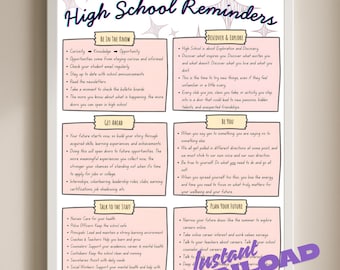 High School Reminders
Be In The Know
• Curiosity ➡ Knowledge ➡ Opportunity
• Opportunities come from staying curious and informed
• Check your student email regularly
• Stay up to date with school announcements
• Read the newsletters
• Take a moment to check the bulletin boards
• The more you know about what is happening, the more
doors you can open in high school
Discover & Explore
• High School is about Exploration and Discovery
• Discover what inspires you. Discover what matters to you
and what doesn't. Discover what you love and what you
don't
• This is the time to try new things, even if they feel
unfamiliar or a little scary.
• Every club you join, class you take or activity you step
into is a door that could lead to new passions, hidden
talents, and unexpected friendships
Get Ahead
• Your future starts now, so build your story through
acquired skills, learning experiences, and achievements
• Doing this will open doors to future opportunities. The
more meaningful experiences you collect now, the
stronger your chances of standing out when it's time
to apply for jobs or college.
• Internships, volunteering, leadership roles, clubs, earning
certifications, job shadowing, etc
Be You
• When you say yes to something you are saying no to
something else
• We all get pulled in different directions at some point, and
we must stick to our own voice and our own direction
• Be true to yourself. It's what you need to do and go all
out!
• When you spread yourself too thin you lose the energy
and time you need to focus on what truly matters for
your wellbeing and your future.
Talk to the Staff
• Nurses: Care for your health
• Police Officers: Keep the school safe
• Principals: Lead and maintain a strong learning environment
• Coaches & Teachers: Help you learn and grow
• Counselors: Support your academics, career & mental health
• Custodians: Keep the school clean and functioning
• Secretaries: Assist with daily needs
• Social Workers: Support your mental health and help with
Plan Your Future
• Narrow your future down like the summer to explore
careers online
• Take online career interest and work values surveys
• Talk to your teachers about careers. Talk
Instant
DOWNLOAD